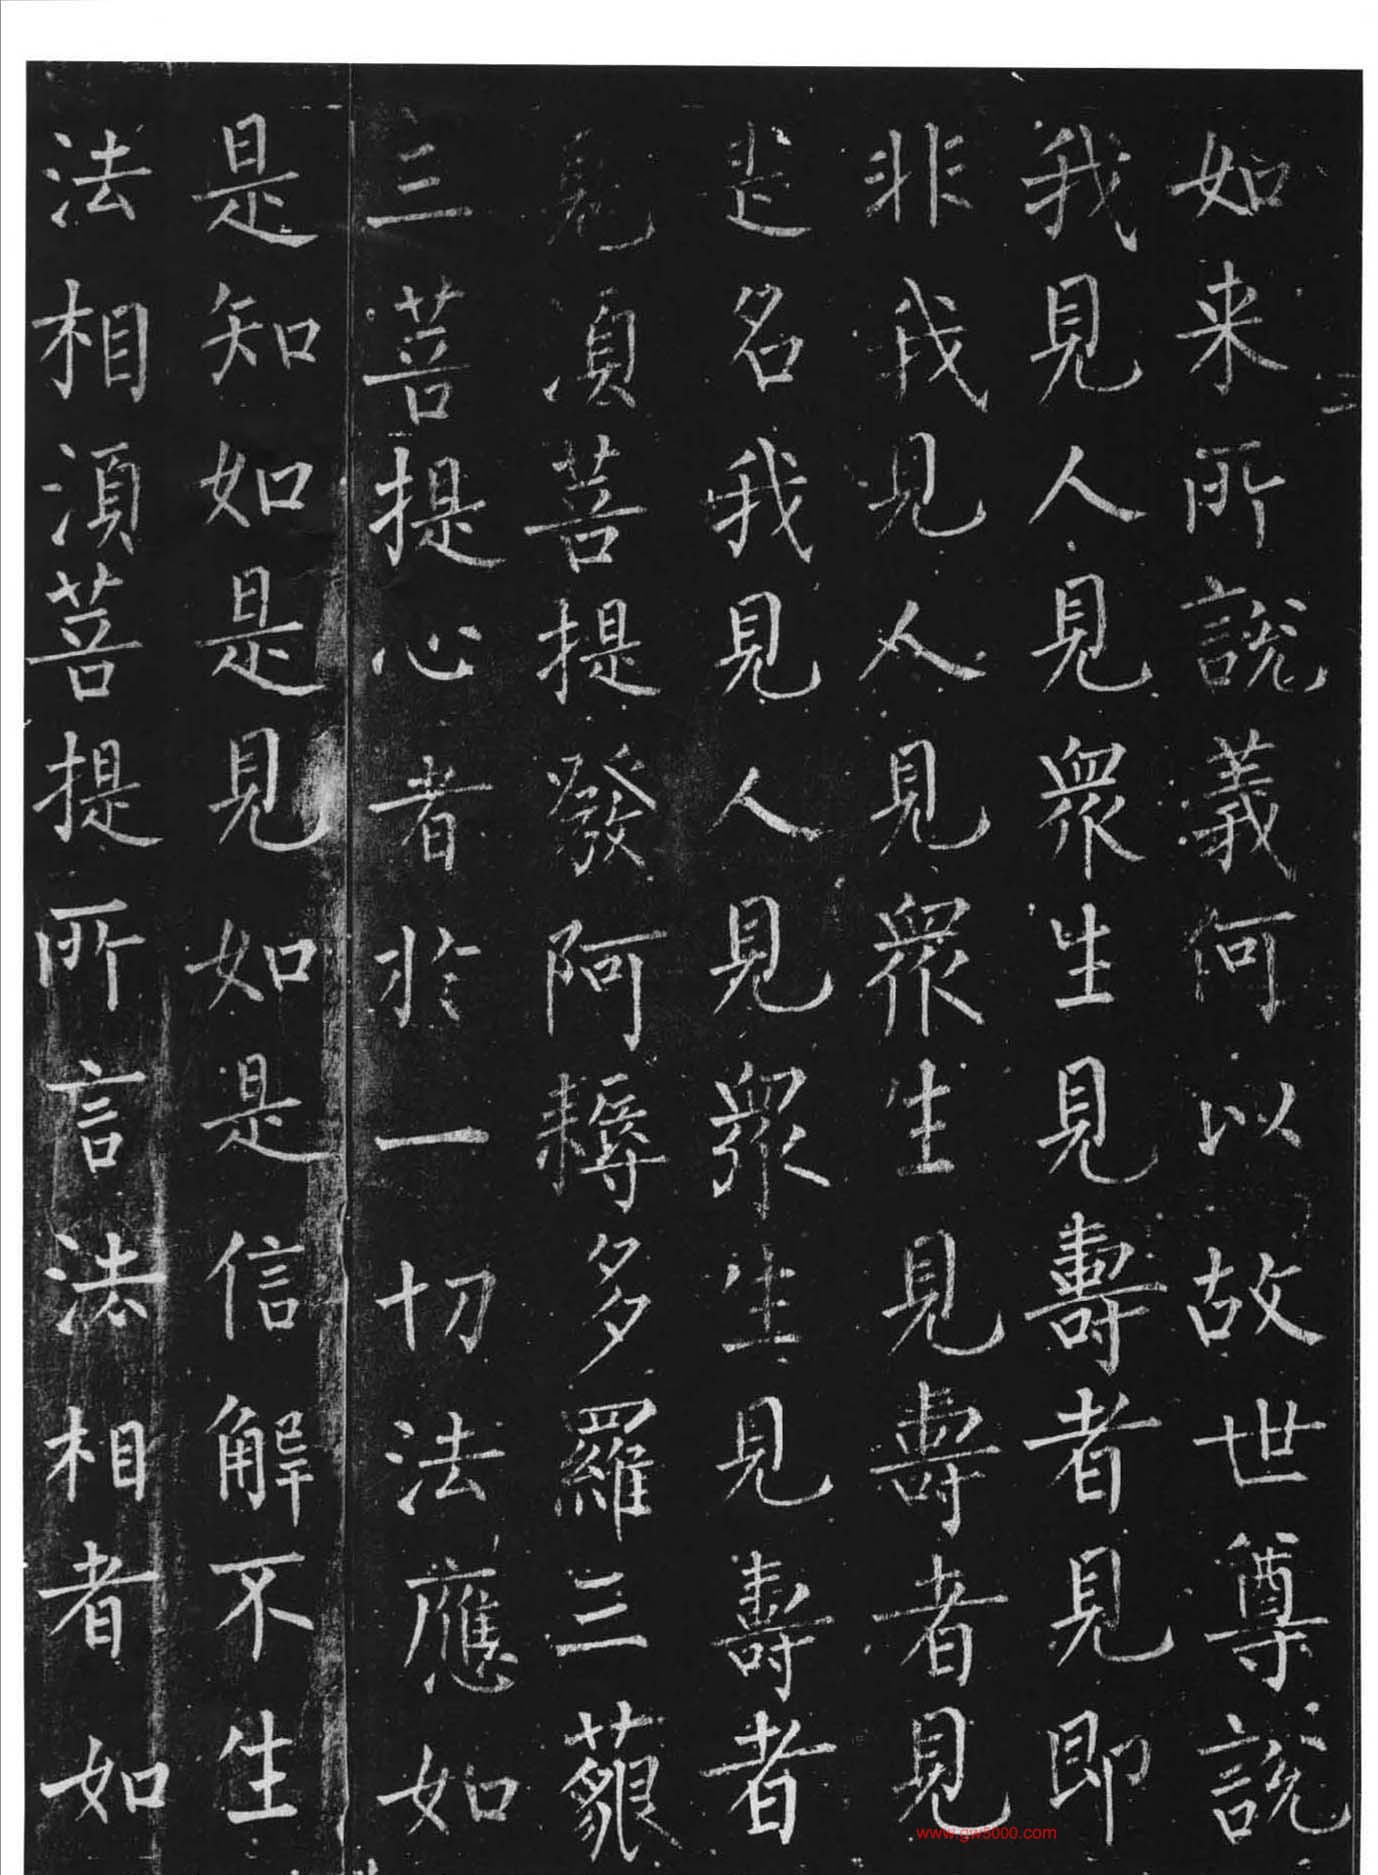 如来所說義何以故世尊說
我見人見衆生見壽者見即
非我見人見衆生見壽者見
是名我見人見衆生見壽者
見湏菩提發阿耨多羅三藐
三菩提心者於一切法應如
是知如是見如是信解不生
法相湏菩提所言法相者如
www.gw5000.com